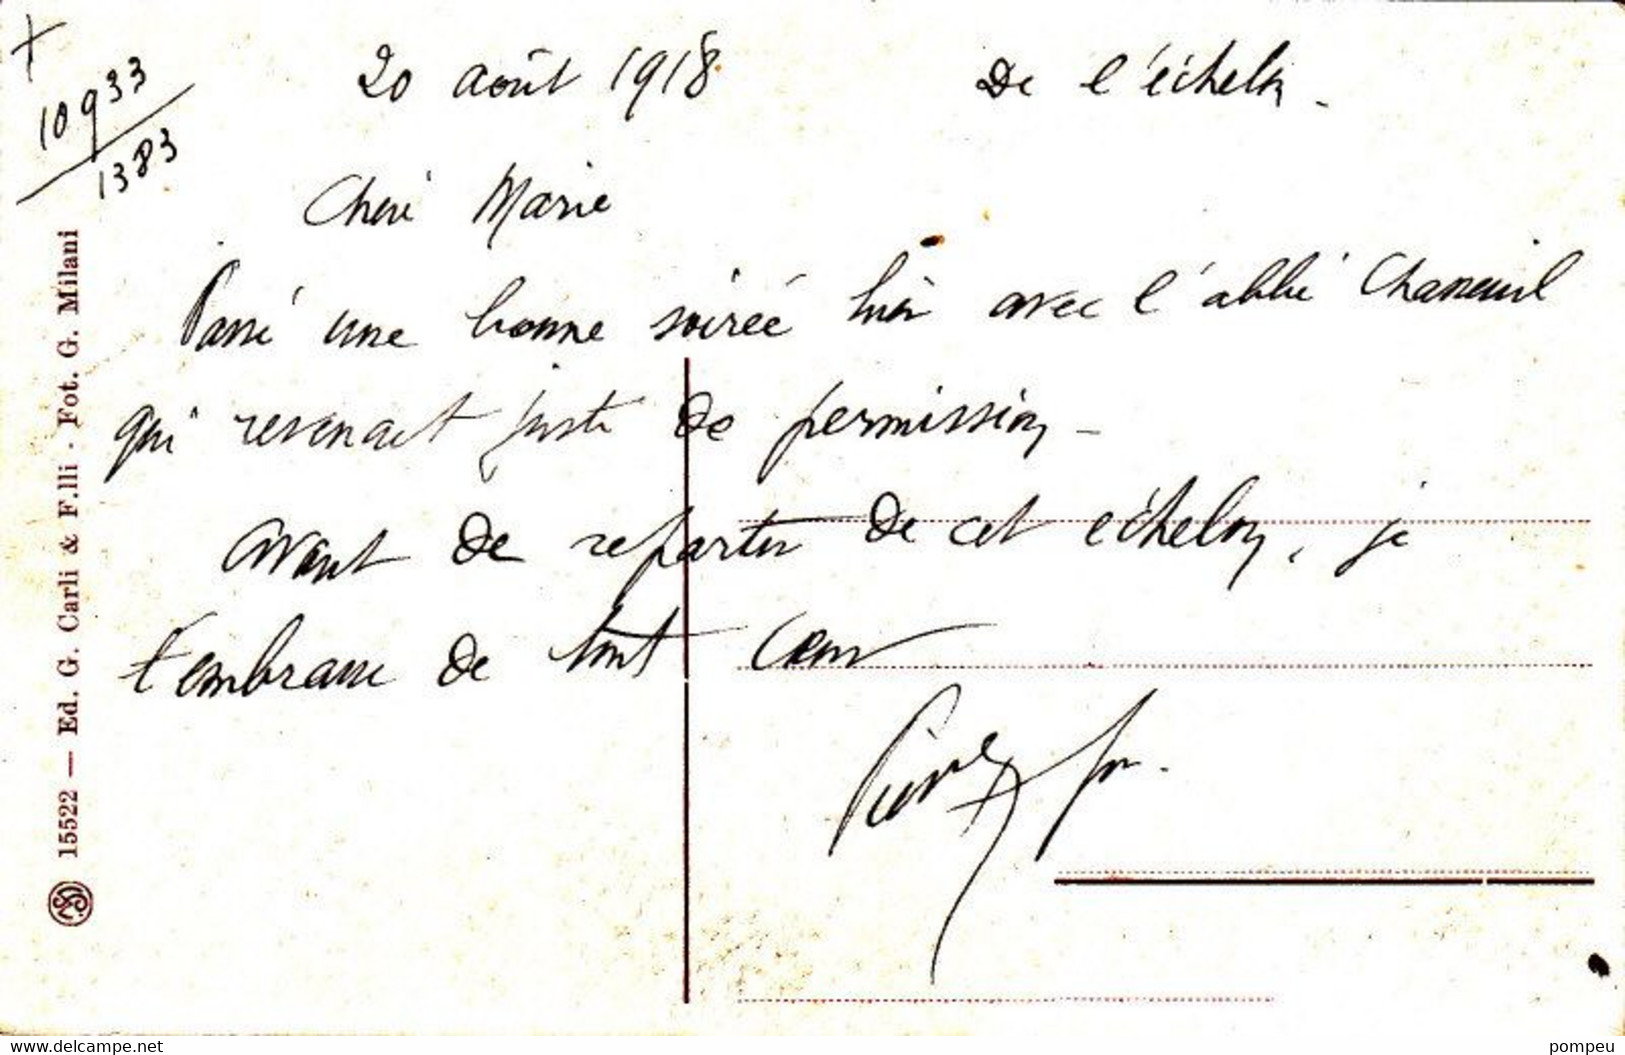 +
10933
1383
20 août 1918 De l'échelon.
Chère Marie
Passé une bonne soirée hier avec l'abbé Chasseuil
qui revenait juste de permission -
Avant de repartir de cet échelon, je
t'embrasse de tout cœur
Pierre
15522 — Ed. G. Carli & F.lli . Fot. G. Milani
www.delcampe.net
pompeu